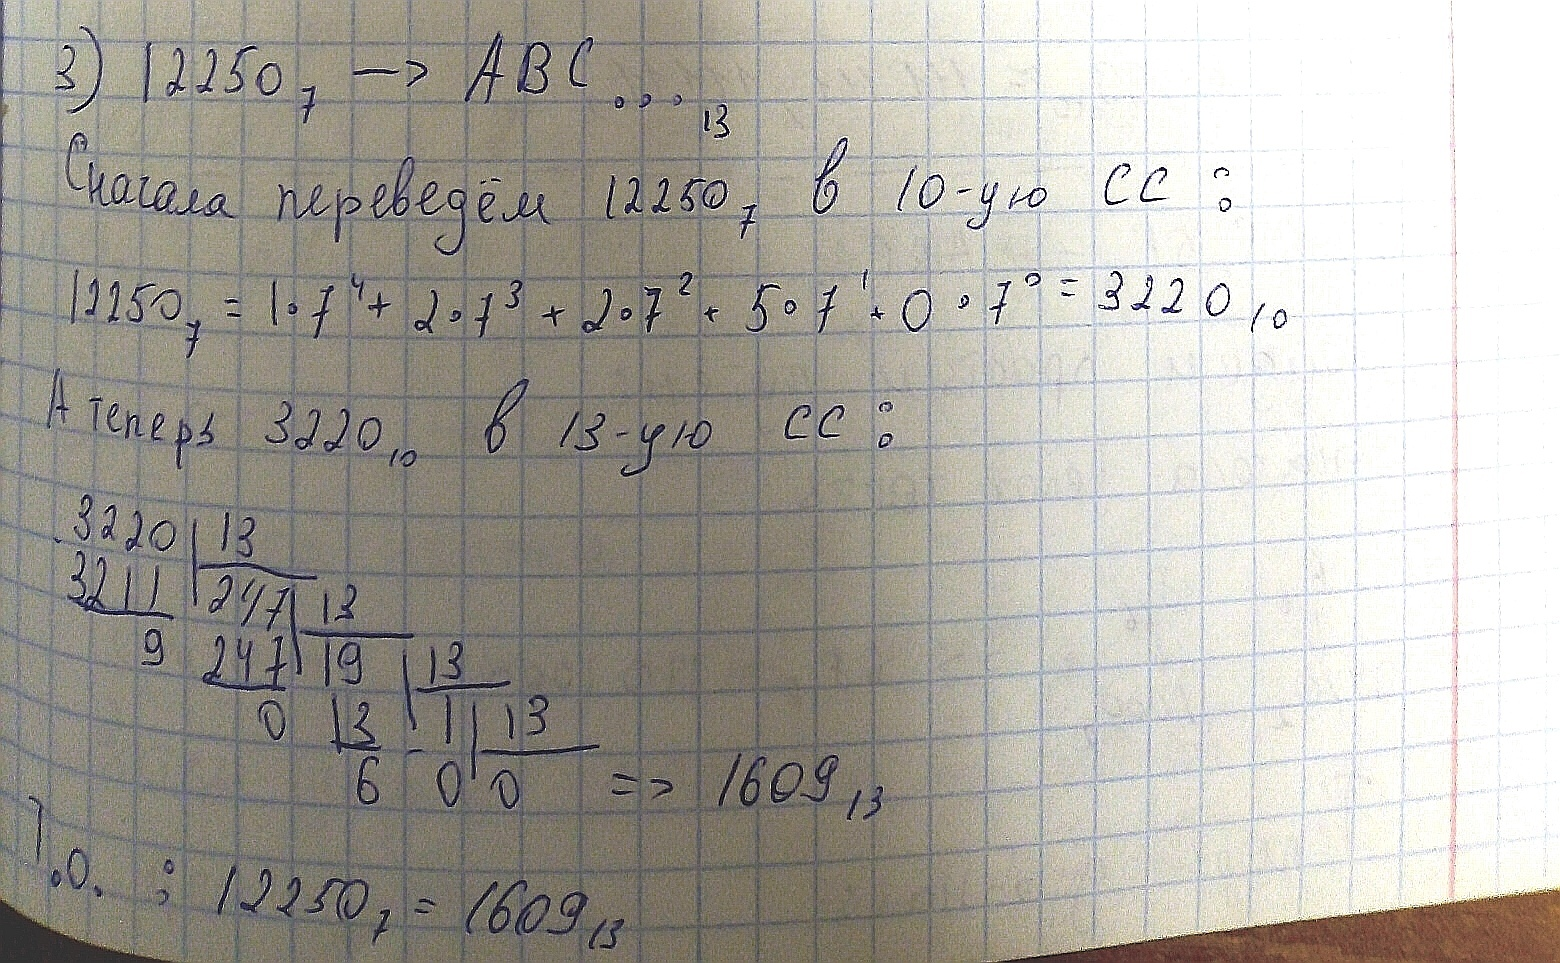 3) 12250₇ —> ABC...₁₃
Сначала переведём 12250₇ в 10-ую СС :
12250₇ = 1·7⁴ + 2·7³ + 2·7² + 5·7¹ + 0·7⁰ = 3220₁₀
А теперь 3220₁₀ в 13-ую СС :
3220 13
3211 247 13
9 247 19 13
0 13 1 13
6 0 0 => 1609₁₃
Т.О. : 12250₇ = 1609₁₃